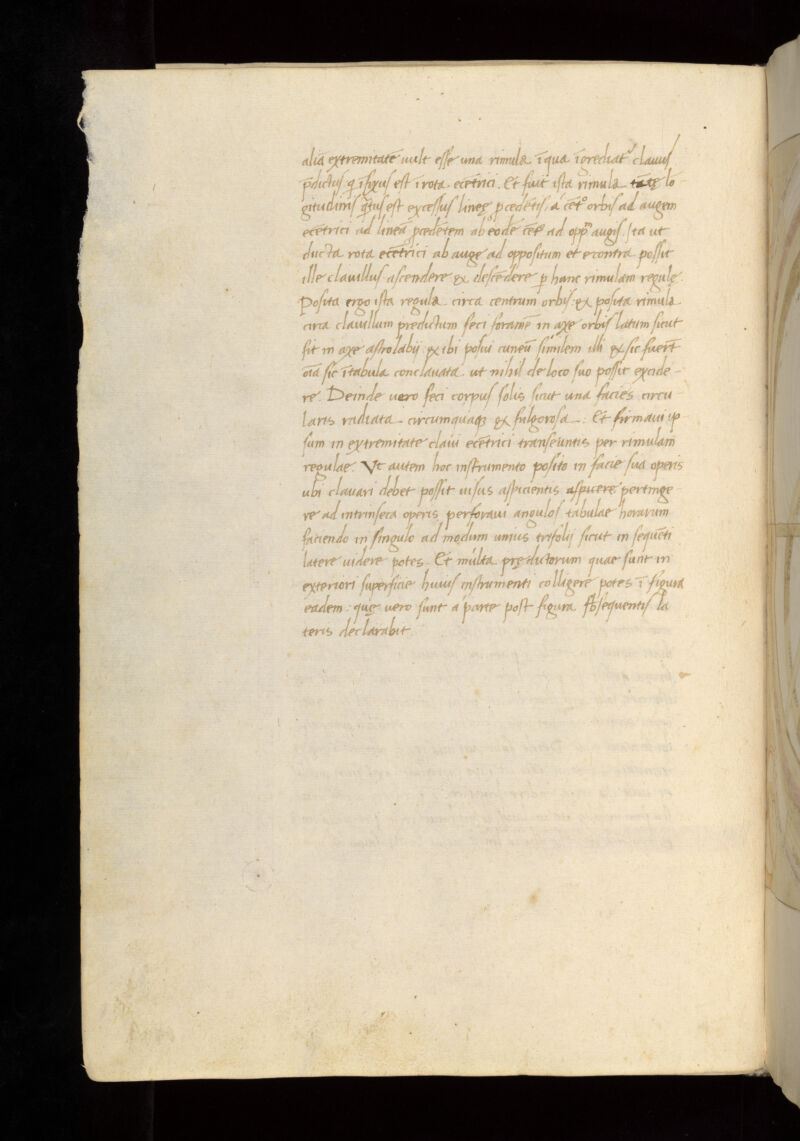 aliā extremitatē uult esse una rimula īqua īgrediat᷑ clauus
p̄dictus q̄ ifixus est ī rota ecētrici. Et fuit ista rimula tātę lō
gitudinis q̄tus est excessus lineę p̄cedētis a cēt° orbis ad augem
ecētrici ad lineā p̄cedētem ab eodē cēt° ad opp° augis. Ita ut
ducta rota ecētrici ab auge ad oppositum et econtra possit
ille clauillus ascendere & descēdere p hanc rimulam regulę.
Posita ergo ista regula circa centrum orbis & posita rimula
circa clauillum predictum feci foramē in axe orbis latum sicut
fit in axe astrolabij & ibi posui cuneū similem illi & sic fuerūt
oīa sic ītabula conclauata ut nihil de loco suo possit excide-
re. Deinde uero feci corpus solis sicut una facies circu
laris radiata circumquaq; & fulgorosa. Et firmaui ip
sum in extremitate claui ecētrici transeuntis per rimulam
regulae. Vt autem hoc instrumento posito in facie sua operis
ubi clauari debet possit uisus aspicientis aspicere pertinge
re ad intrinseca operis perforaui angulos tabulae horarum
faciendo in singulo ad modum unius trifolij sicut in sequēti
latere uidere potes. Et multa prędictorum quae sunt in
exteriori superficie huius instrumenti colligere potes ī figura
eadem. quę uero sunt a parte post figura subsequentis la
teris declarabit